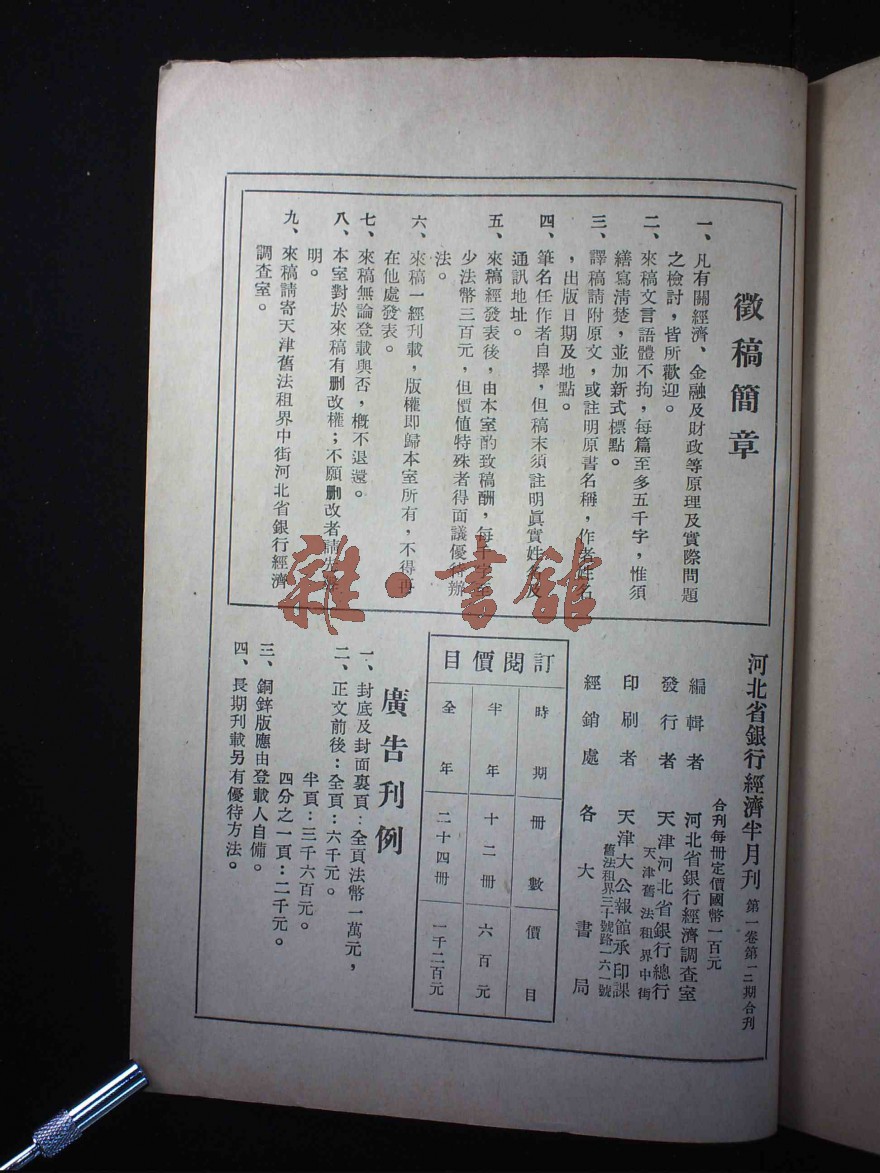 徵稿簡章
一、凡有關經濟、金融及財政等原理及實際問題
之檢討，皆所歡迎。
二、來稿文言語體不拘，每篇至多五千字，惟須
繕寫清楚，並加新式標點。
三、譯稿請附原文，或註明原書名稱，作者姓名
，出版日期及地點。
四、筆名任作者自擇，但稿末須註明眞實姓名及
通訊地址。
五、來稿經發表後，由本室酌致稿酬，每千字至
少法幣三百元，但價値特殊者得面議優待辦
法。
六、來稿一經刊載，版權即歸本室所有，不得再
在他處發表。
七、來稿無論登載與否，槪不退還。
八、本室對於來稿有删改權；不願删改者請先
明。
九、來稿請寄天津舊法租界中街河北省銀行經濟
調查室。
河北省銀行經濟半月刊 第一卷第一二期合刊
合刊每冊定價國幣一百元
編輯者 河北省銀行經濟調查室
發行者 天津河北省銀行總行
天津舊法租界中街
印刷者 天津大公報館承印課
舊法租界三十號路一六一號
經銷處 各大書局
訂閱價目
時期 冊數 價目
半年 十二冊 六百元
全年 二十四冊 一千二百元
廣告刊例
一、封底及封面裏頁：全頁法幣一萬元，
二、正文前後：全頁：六千元。
半頁：三千六百元。
四分之一頁：二千元。
三、銅鋅版應由登載人自備。
四、長期刊載另有優待方法。
雜·書館